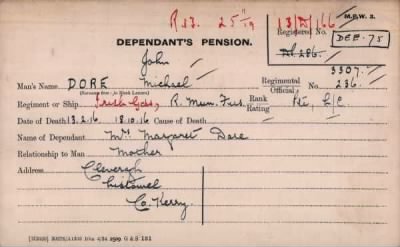 R 13. 25"/19 13/D/166 M.P.W. 3.
Registered No.
D.286. DEF. 75
DEPENDANT'S PENSION.
John
Man's Name DORE Michael
(Surname first in Block Letters)
Regimental Official No. 3307. 236.
Regiment or Ship Irish Gds, R. Mun. Fus. Rank Rating Pte, L/C.
Date of Death 13.2.16. 18.10.16 Cause of Death
Name of Dependant Mrs Margaret Dore
Relationship to Man Mother
Address Cleveragh
Listowel
Co. Kerry.